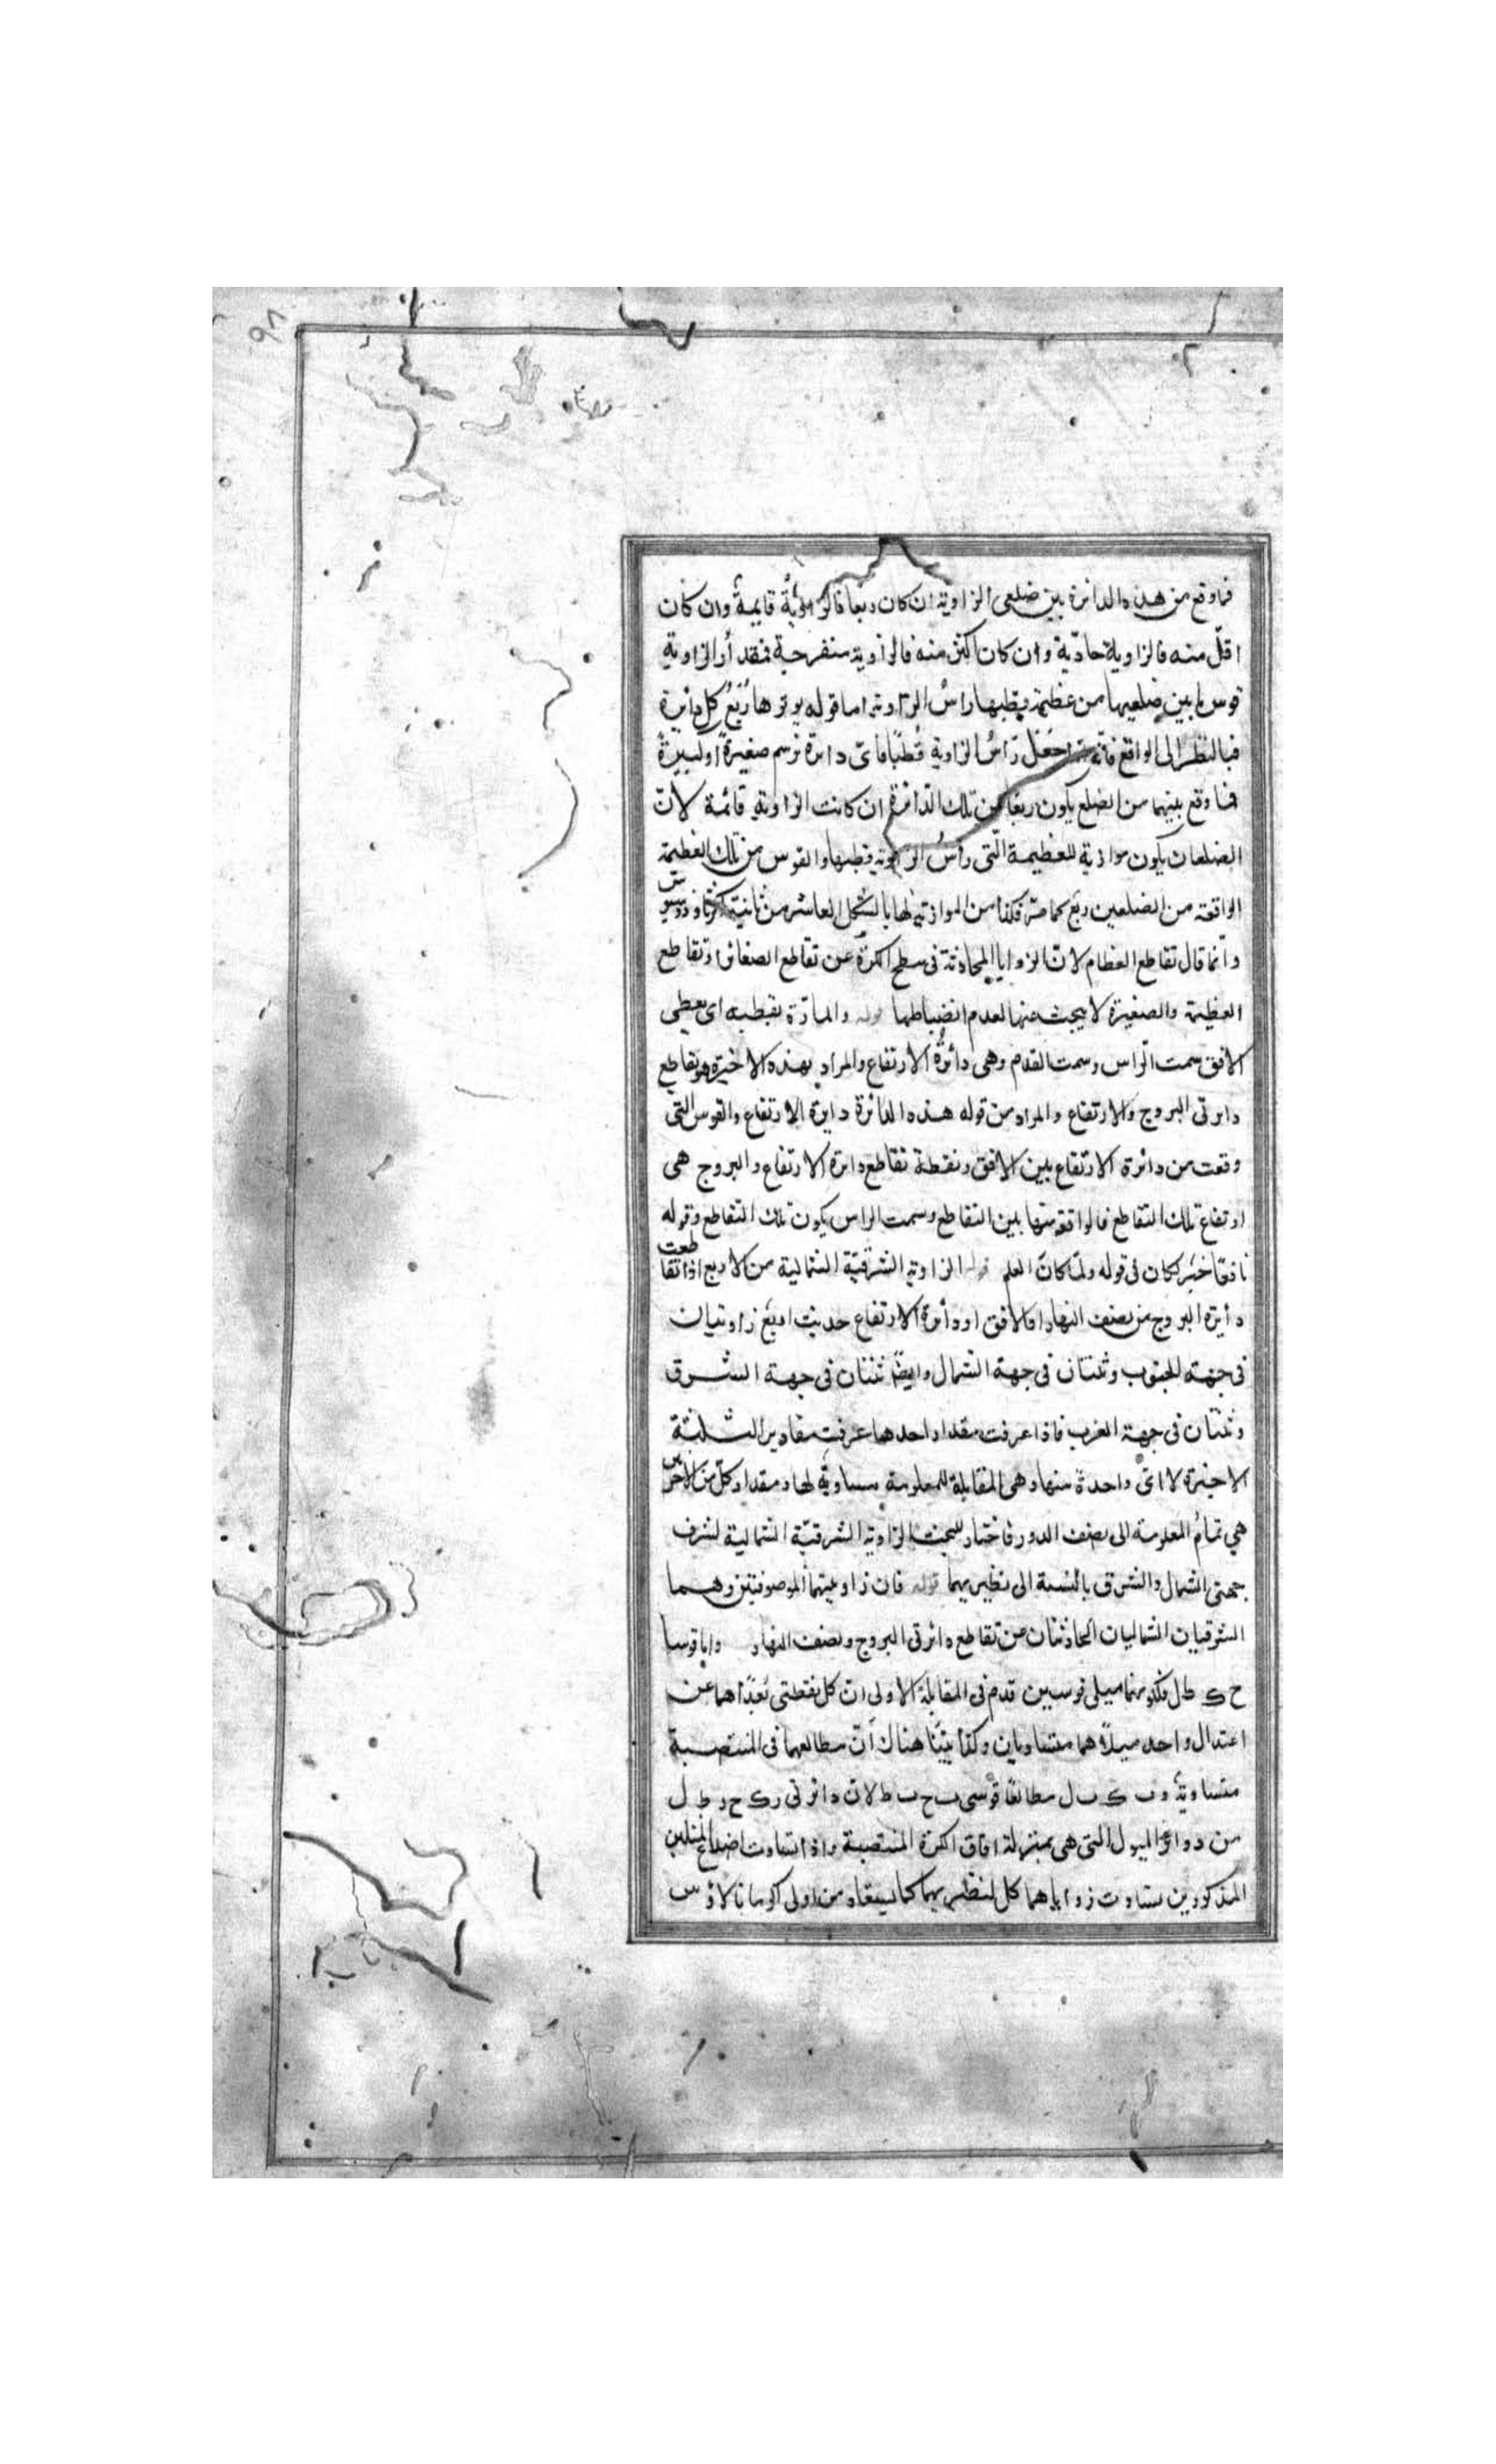 ٩٨
فما وقع من هذه الدائرة بين ضلعى الزاوية ان كان ربعا فالزاوية قايمة وان كان
اقل منه فالزاوية حادّية وان كان اكثر منه فالزاوية منفرجة فمقدار الزاوية
قوس ما بين ضلعيها من عظيمة وقطبها راسُ الزاوية اما قوله يوترها رُبعُ كل دائرة
فبالنظر الى الواقع فانّه جَعَل رَاسُ الزاوية قُطبًا فاىّ دائرة نرسم صغيرةً اوكبيرةً
فما وقع بينهما من الضلع يكون ربعًا من تلك الدّائرة ان كانت الزاوية قائمة لانّ
الضلعان يكون موازية للعظيمة الّتى راسُ الزاوية قطبها والقوس من تلك العظيمة
الواقعة من الضلعين ربع كما مرّ فكذا من الموازية لها بالشكل العاشر من ثانية اكرثاوذوسيوس
وانّما قال تقاطع العظام لانّ الزوايا المحادثة فى سطح الكرة عن تقاطع الصغائر او تقاطع
العظيمة والصغيرة لا يبحث عنها لعدم انضباطها قوله والمارّة بقطبيه اى بقطبى
الافق سمت الّراس وسمت القدم وهى دائرةُ الارتفاع والمراد بهذه الاخيرة هو تقاطع
دايرتى البروج والارتفاع والمراد من قوله هذه الدائرة دايرة الارتفاع والقوس التى
وقعت من دائرة الارتفاع بين الافق ونقطة تقاطع دائرة الارتفاع والبروج هى
ارتفاع تلك التقاطع فالواقعة منها بين التقاطع وسمت الراس يكون تلك التقاطع وقوله
نافقا خبر لكان فى قوله ولمّا كان العلم قوله الزاوية الشرقيّة الشمالية من الاربع اذا تقاطعت
دأيرة البروج من نصف النهار او الافق او دأئرة الارتفاع حديث اربع زاوتيان
فى جهة الجنوب وثنتان فى جهة الشمال وايضًا ثنتان فى جهة الشرق
وثنتان فى جهة الغرب فاذا عرفت مقدار احدها عرفت مقادير الثلثة
الاخيرة لا انّ واحدة منها وهى المقابلة للمعلومة مساوية لها ومقدار كل من الاخريين
هي تمامُ المعلومة الى نصف الدور فاختار للبحث الزاوية الشرقيّة الشمالية لشرف
جهتى الشمال والشرق بالنسبة الى نظيريهما قوله فان زاويتيهما الموصوفتين وهما
الشرقيان الشماليان الحادثتان من تقاطع دائرتى البروج ونصف النهار واما قوسا
ح ك ط ل فلكونهما ميلى قوسين قدم فى المقابلة الاولى انّ كل نقطتى بُعدًاهما عن
اعتدال واحد ميلاهما متساويان وكذا بيّنا هناك انّ مطالعهما فى المنتصبة
متساوية و ب ك ب ل مطالعًا قوسى ب ح ب ط لان دائرتى ر ك ح ر ط ل
من دوائر الميول التى هى بمنزلة افاق الكرة المنتصبة واذا تساوت اضلاع المثلين
المذكورين تساوت زواياهما كل لنظيريهما كما يستفاد من اولى اكرمانالاؤس